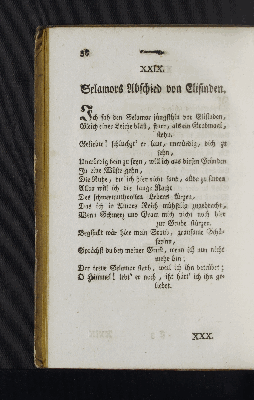 36
XXIX.
Selamors Abschied von Elisinden.
Ich sah den Selamor jüngsthin vor Elisinden,
Gleich einer Leiche blaß, starr, als ein Grabmaal,
stehn.
Geliebte! schluchzt' er laut, unwürdig, dich zu
sehn,
Unwürdig dein zu seyn, will ich aus diesen Gründen
In eine Wüste gehn,
Die Ruhe, die ich hier nicht fand, allda zu finden
Allda will ich die lange Nacht
Des schmerzenvollen Lebens
Das ich in Amors Reich mühselig zugebracht,
Wenn Schmerz und Gram mich nicht noch hier
zur Grube stürzen.
Begrübst wär hier mein Staub, grausame Schä-
ferinn,
Sprächst du bey meiner Gruft, wenn ich nun nicht
mehr bin:
Der treue Selamor starb, weil ich ihn betrübet;
O Himmel! lebt' er noch, itzt hätt' ich ihn ge-
liebet.
XXX.